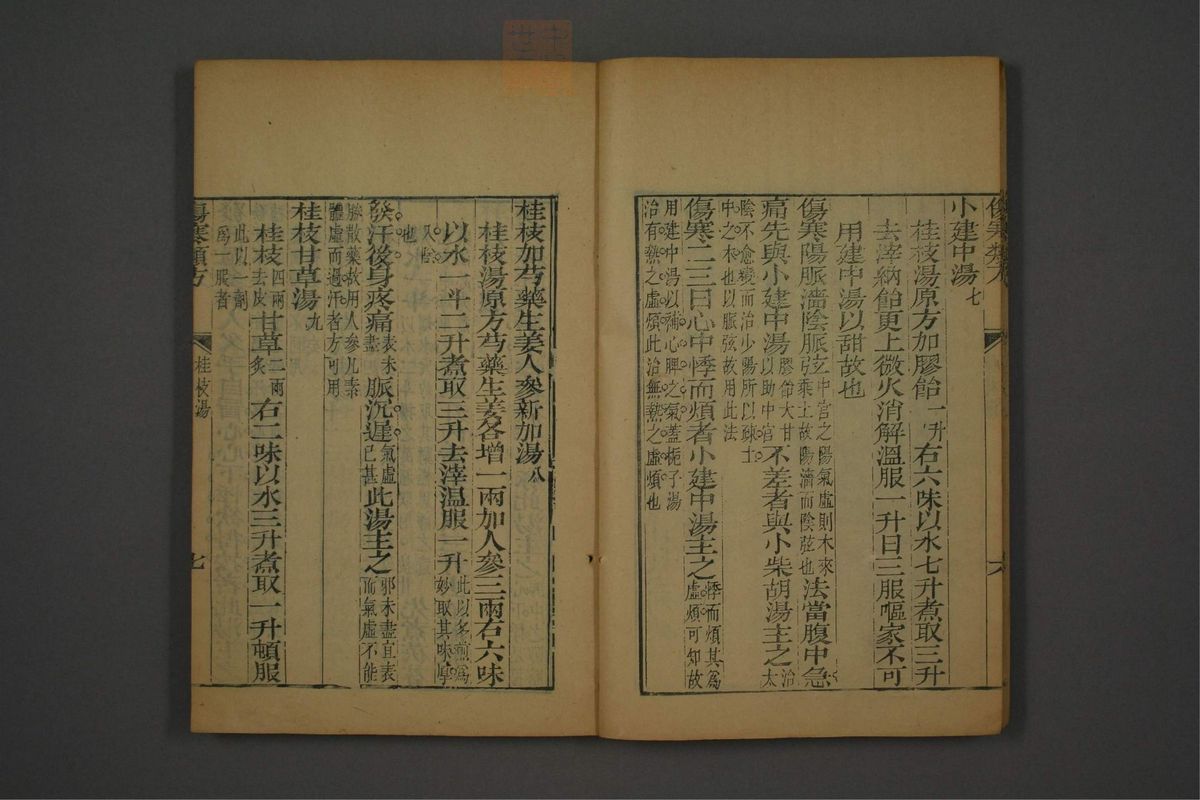 小建中湯 七
桂枝湯原方加膠飴一升右六味以水七升煮取三升
去滓納飴更上微火消解溫服一升日三服嘔家不可
用建中湯以甜故也
傷寒陽脈濇陰脈弦中宮之陽氣虛則木來乘土故陽濇而陰弦也法當腹中急
痛先與小建中湯膠飴大甘以助中宮不差者與小柴胡湯主之治太
陰不愈變而治少陽所以疎土中之木也以脈弦故用此法
傷寒二三日心中悸而煩者小建中湯主之悸而煩其為虛煩可知故
用建中湯以補心脾之氣蓋梔子湯治有熱之虛煩此治無熱之虛煩也
桂枝加芍藥生姜人參新加湯 八
桂枝湯原方芍藥生姜各增一兩加人參三兩右六味
以水一斗二升煮取三升去滓溫服一升此以多煎為妙取其味厚
也
發汗後身疼痛表未盡脈沉遲氣虛已甚此湯主之邪未盡宜表而氣虛不能
勝散藥故用人參凡素體虛而過汗者方可用
桂枝甘草湯 九
桂枝四兩去皮甘草二兩炙右二味以水三升煮取一升頓服
此以一劑為一服者
傷寒類方
桂枝湯
七
六